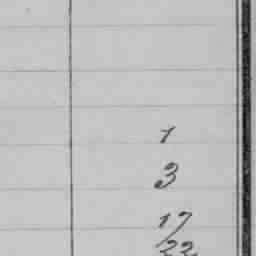 1
3
17
22